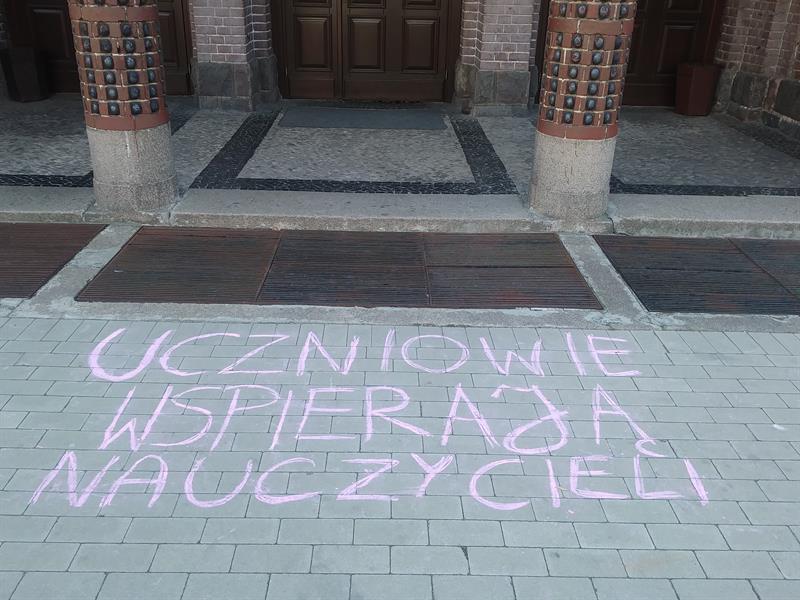 UCZNIOWIE
WSPIERAJĄ
NAUCZYCIELI